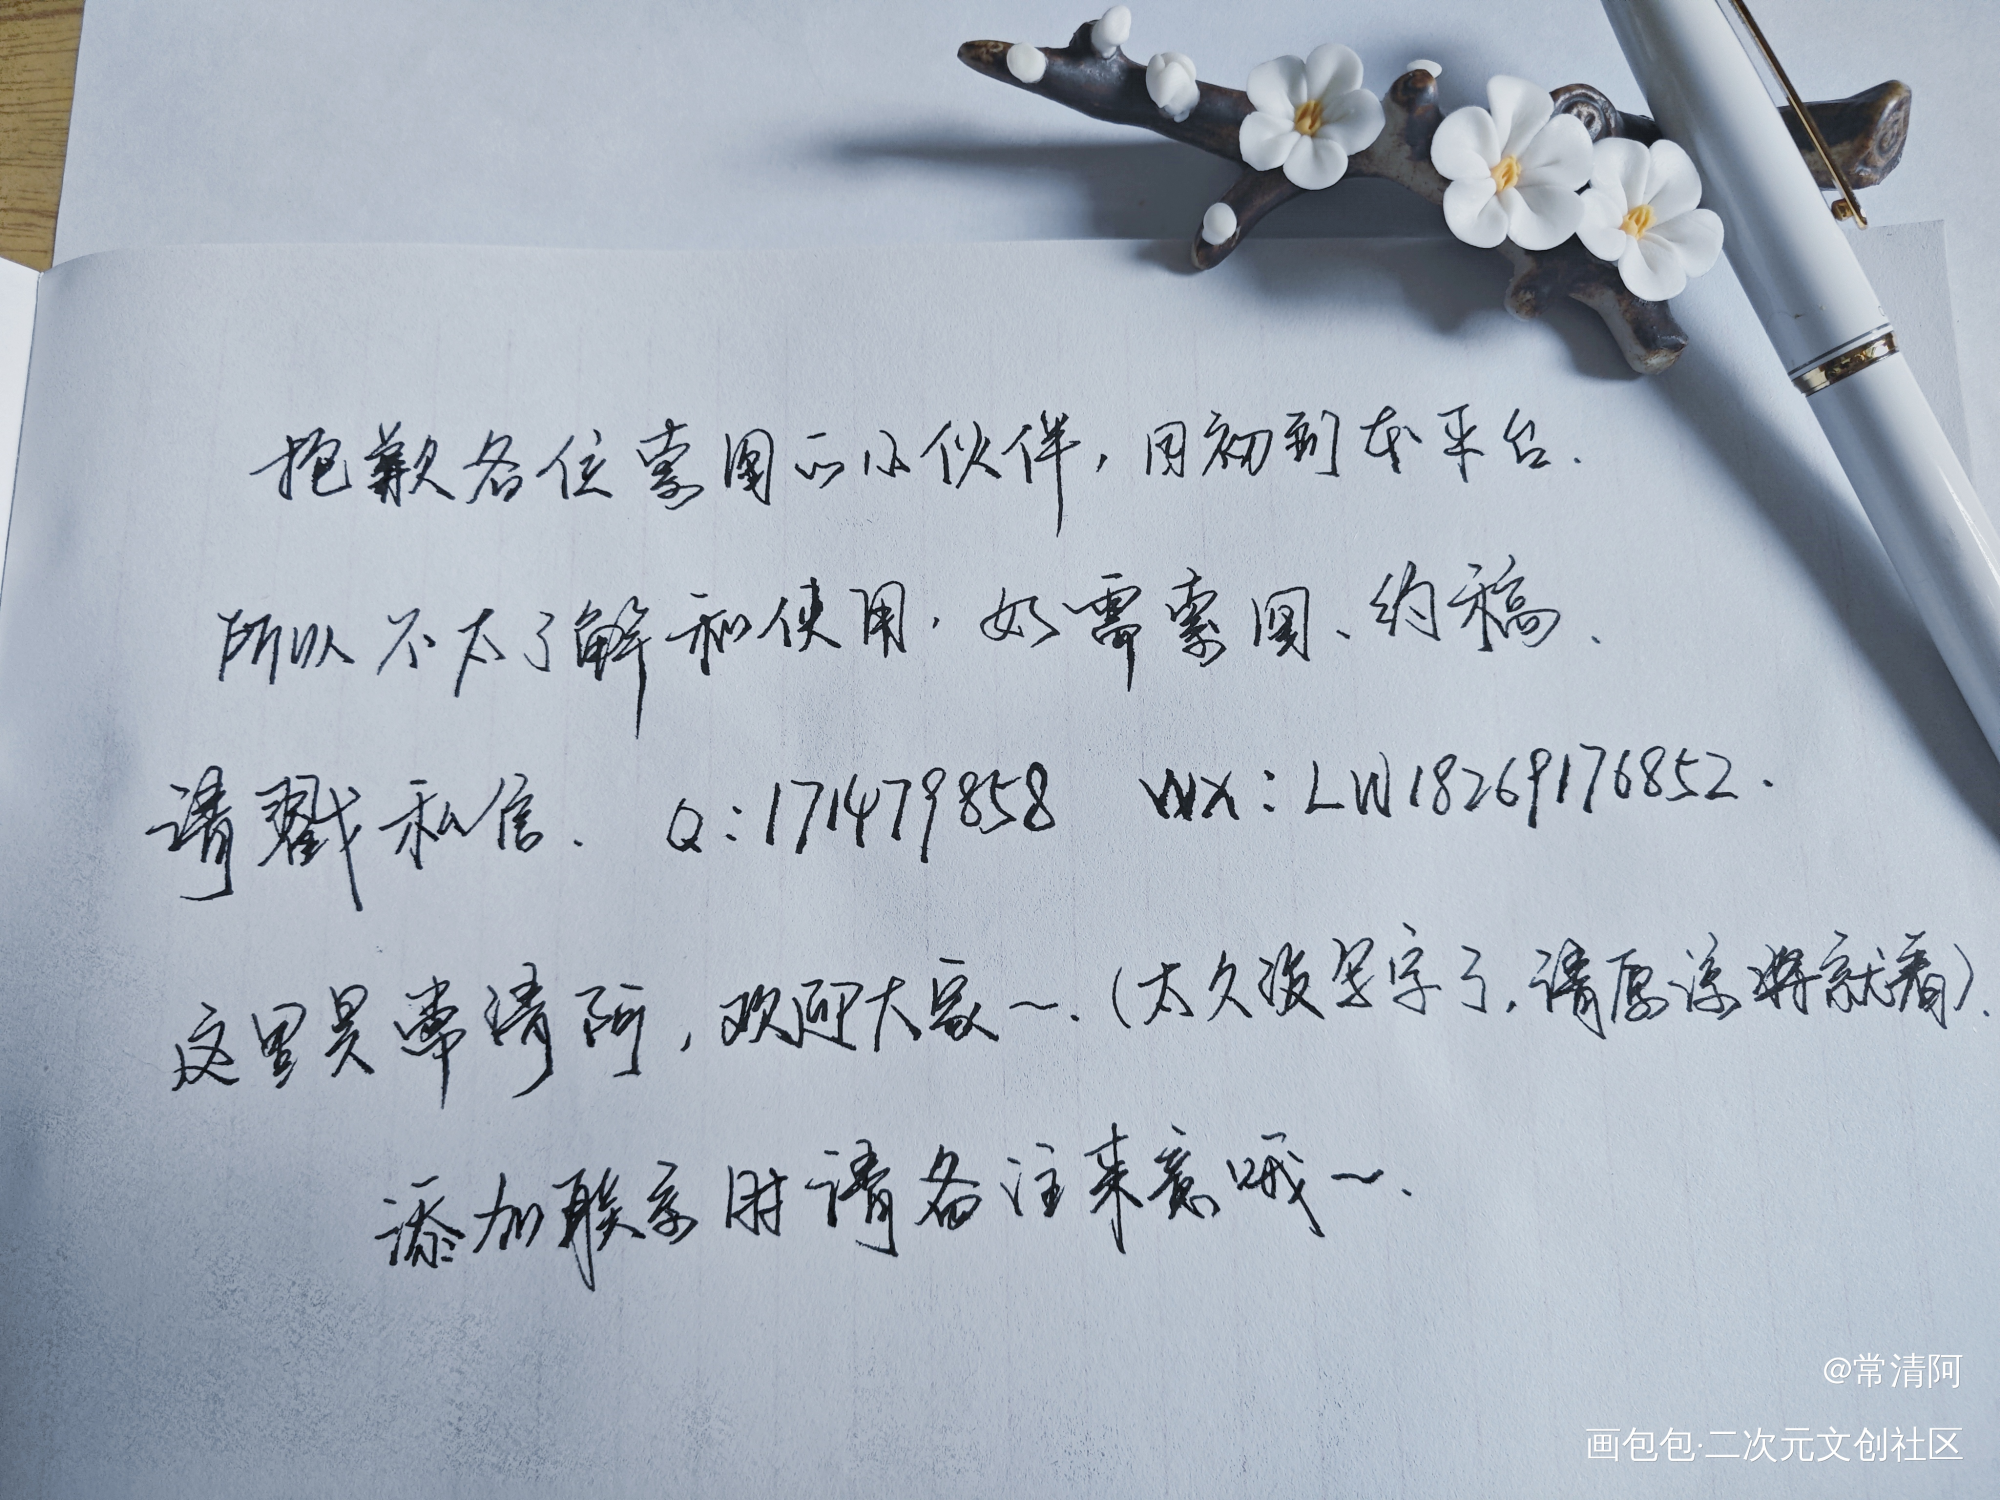 抱歉各位索图的小伙伴，因初到本平台.
所以不太了解和使用.如需索图、约稿、
请戳私信. Q:171479858 WX:LW18269176852.
这里是常清阿,欢迎大家~.(太久没写字了,请原谅将就看).
添加联系时请备注来意哦~.
@常清阿
画包包·二次元文创社区